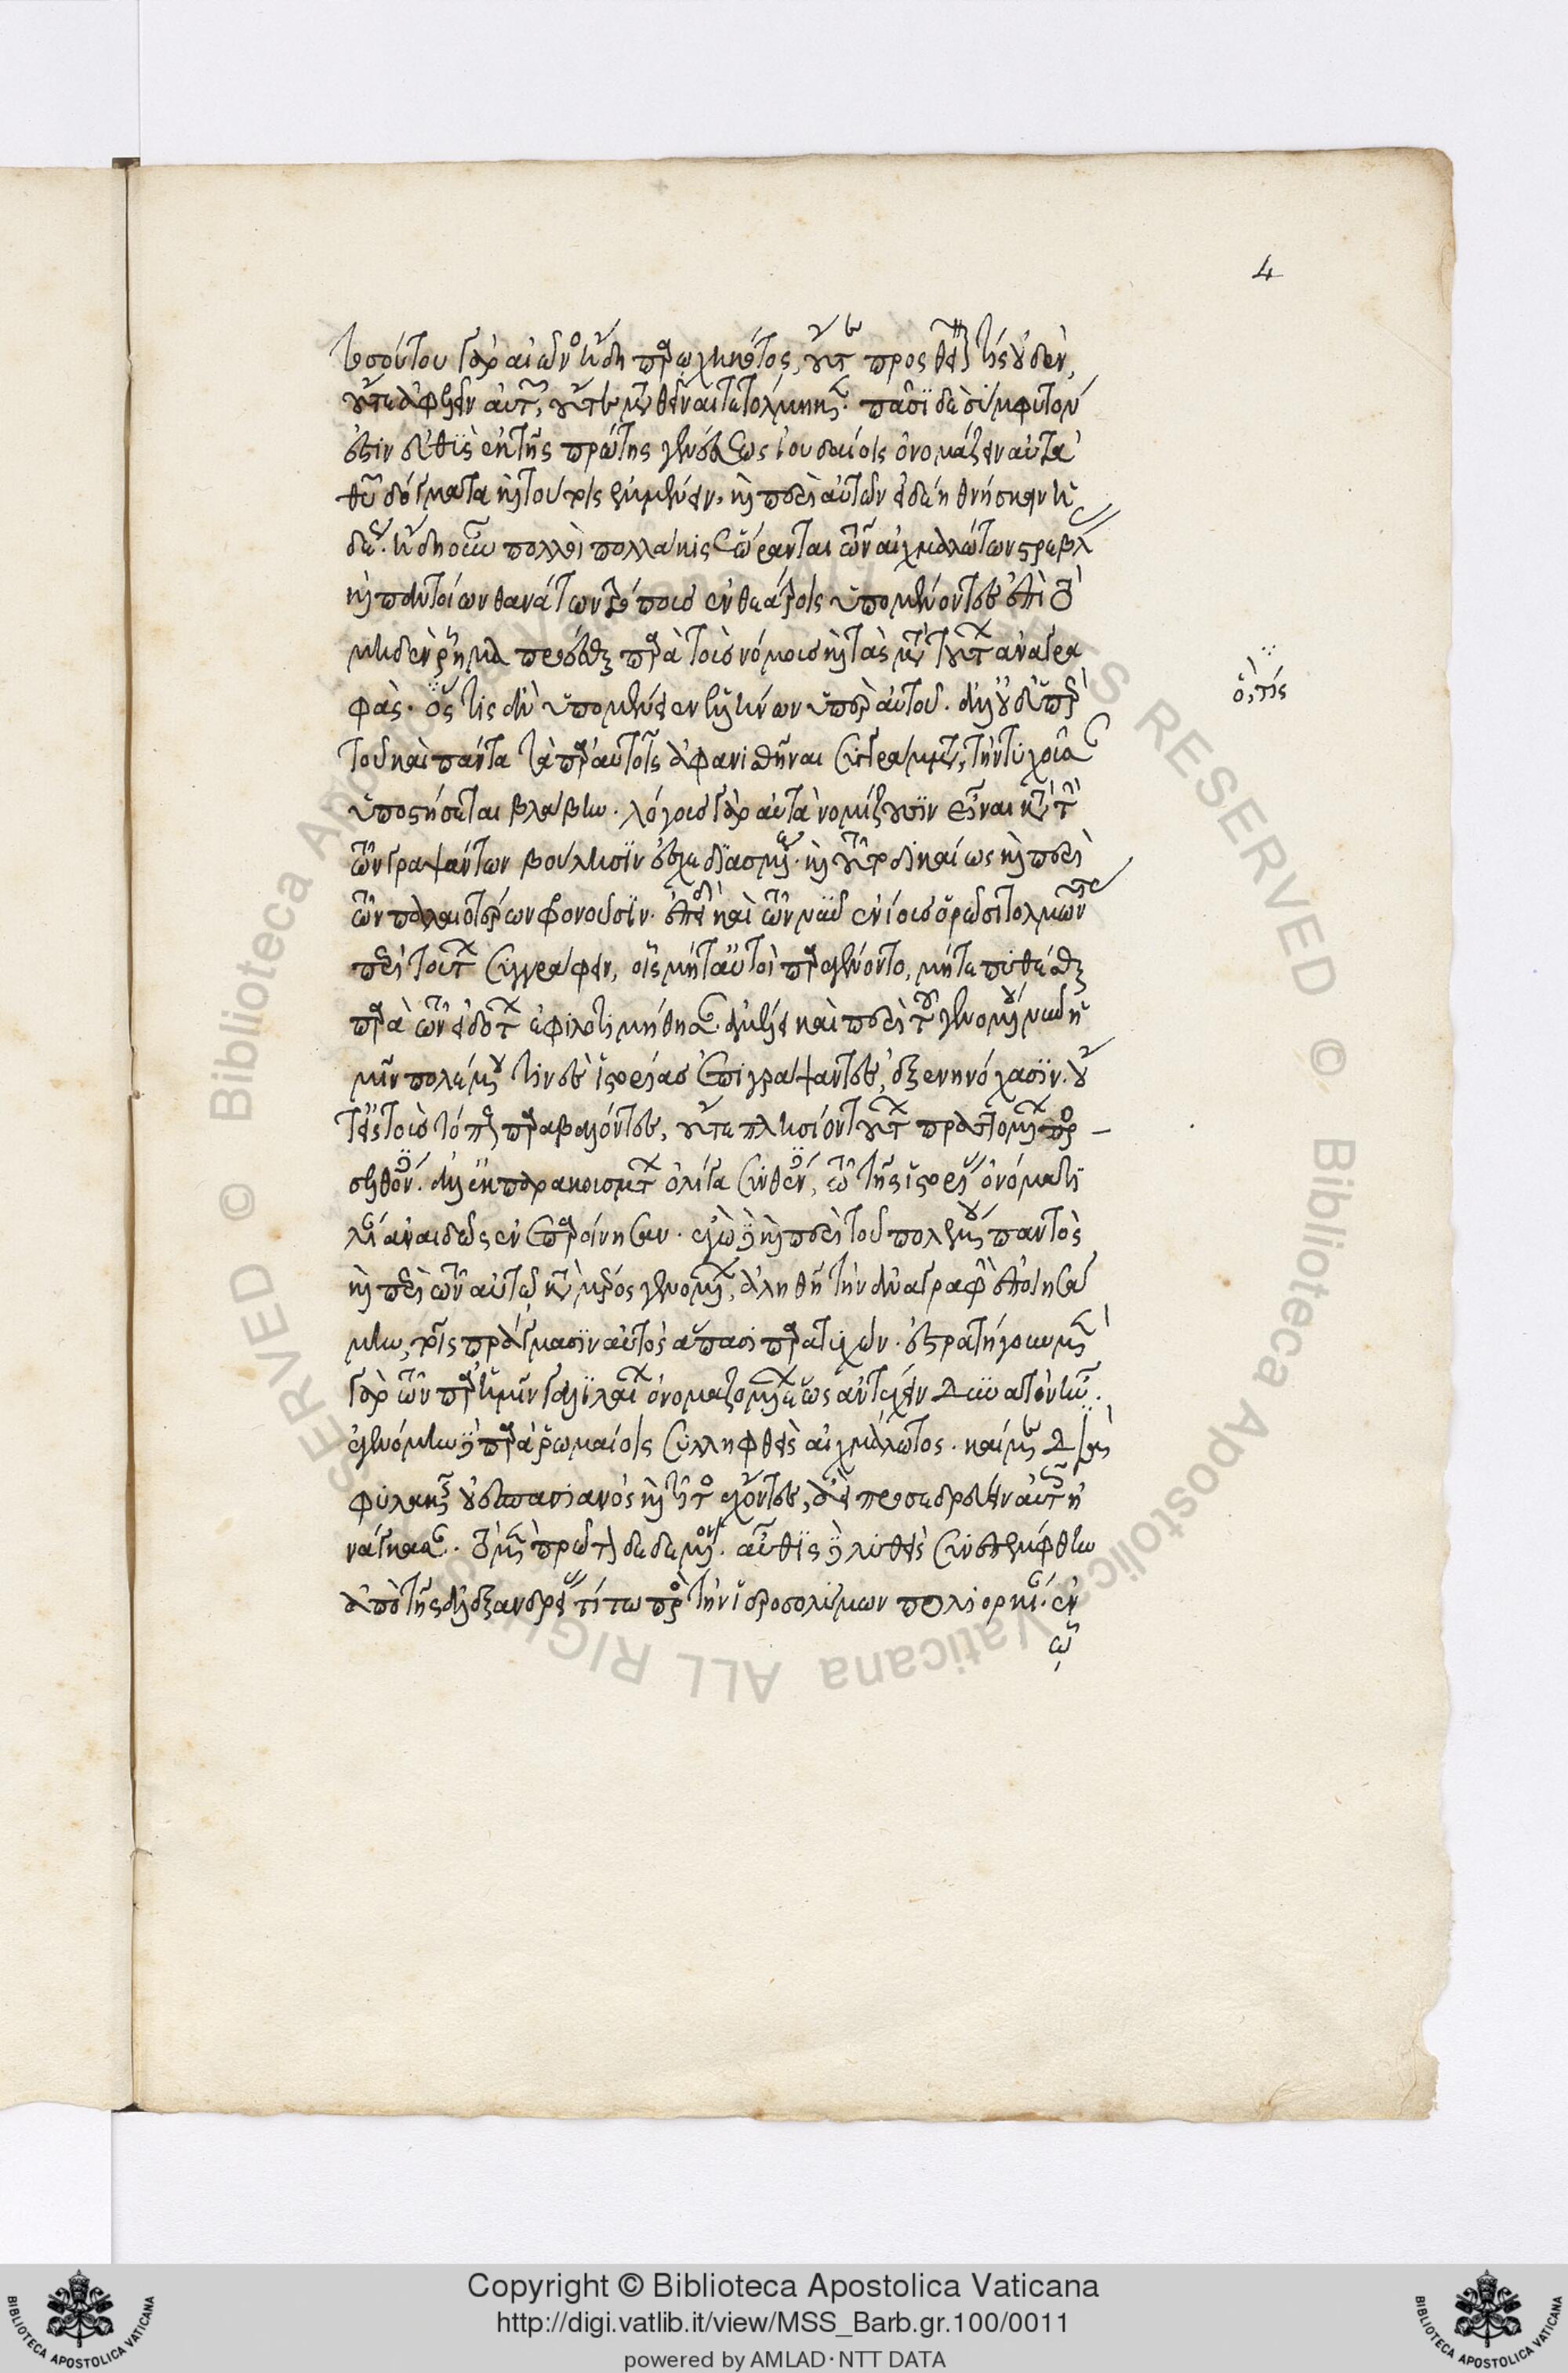 4
τοσούτου γὰρ αἰῶνος ἤδη παρῳχηκότος, οὔτε προσθεῖναί τις οὐδὲν,
οὔτε ἀφελεῖν αὐτῶν, οὔτε μεταθεῖναι τετόλμηκε. πᾶσι δὲ σύμφυτόν
ἐστιν εὐθὺς ἐκ τῆς πρώτης γενέσεως ἰουδαίοις ὀνομάζειν αὐτὰ
θεοῦ δόγματα καὶ τούτοις ἐμμένειν, καὶ περὶ αὐτῶν εἰ δέοι θνήσκειν ἡ
δέως. ἤδη οὖν πολλοὶ πολλάκις ἑώρανται τῶν αἰχμαλώτων στρέβλας
καὶ παντοίων θανάτων τρόπους ἐν θεάτροις ὑπομένοντες ἐπὶ τὸ
μηδὲν ῥῆμα προέσθαι παρὰ τοὺς νόμους καὶ τὰς μετὰ τούτων ἀναγρα
φάς. ὅς τις ἂν ὑπομείνειεν ἑλλήνων ὑπὲρ αὐτοῦ. ἀλλ' οὐδ' ὑπὲρ
ὅ, τίς
τοῦ καὶ πάντα τὰ παρ' αὐτοῖς ἀφανισθῆναι συγγράμματα, τὴν τυχοῦσαν
ὑποστήσεται βλάβην. λόγους γὰρ αὐτὰ νομίζουσιν εἶναι κατὰ τὴν
τῶν γραψάντων βούλησιν ἐσχεδιασμένα. καὶ τοῦτο δικαίως καὶ περὶ
τῶν παλαιοτέρων φρονοῦσιν. ἐπειδὴ καὶ τῶν νῦν ἐνίους ὁρῶσι τολμῶντας
περὶ τούτων συγγράφειν, οἷς μήτ' αὐτοὶ παρεγένοντο, μήτε πυθέσθαι
παρὰ τῶν εἰδότων ἐφιλοτιμήθησαν. ἀμέλει καὶ περὶ τοῦ γενομένου νῦν ἡ
μῖν πολέμου τινὲς ἱστορίας ἐπιγράψαντες, ἐξενηνόχασιν. οὔ
τ' εἰς τοὺς τόπους παραβαλόντες, οὔτε πλησίον τούτων πραττομένων προ
σελθόντες. ἀλλ' ἐκ παρακουσμάτων ὀλίγα συνθέντες, τῷ τῆς ἱστορίας ὀνόματι
λίαν ἀναιδῶς ἐνεπαροίνησαν. ἐγὼ δὲ καὶ περὶ τοῦ πολέμου παντὸς
καὶ περὶ τῶν αὐτῷ κατὰ μέρος γενομένων, ἀληθῆ τὴν ἀναγραφὴν ἐποιησά
μην, τοῖς πράγμασιν αὐτὸς ἅπασι παρατυχών. ἐστρατήγουν μὲν
γὰρ τῶν παρ' ἡμῖν γαλιλαίων ὀνομαζομένων ἕως ἀντέχειν δυνατὸν ἦν.
ἐγενόμην δὲ παρὰ ῥωμαίοις συλληφθεὶς αἰχμάλωτος. καί με διὰ
φυλακῆς οὐεσπασιανὸς καὶ τίτος ἔχοντες, ἀεὶ προσεδρεύειν αὐτοῖς ἠ
νάγκασαν. τὸ μὲν πρῶτον δεδεμένον. αὖθις δὲ λυθεὶς συνεπέμφθην
ἀπὸ τῆς ἀλεξανδρείας τίτῳ πρὸς τὴν ἱεροσολύμων πολιορκίαν. ἐν
ᾧ
Copyright © Biblioteca Apostolica Vaticana
http://digi.vatlib.it/view/MSS_Barb.gr.100/0011
powered by AMLAD · NTT DATA